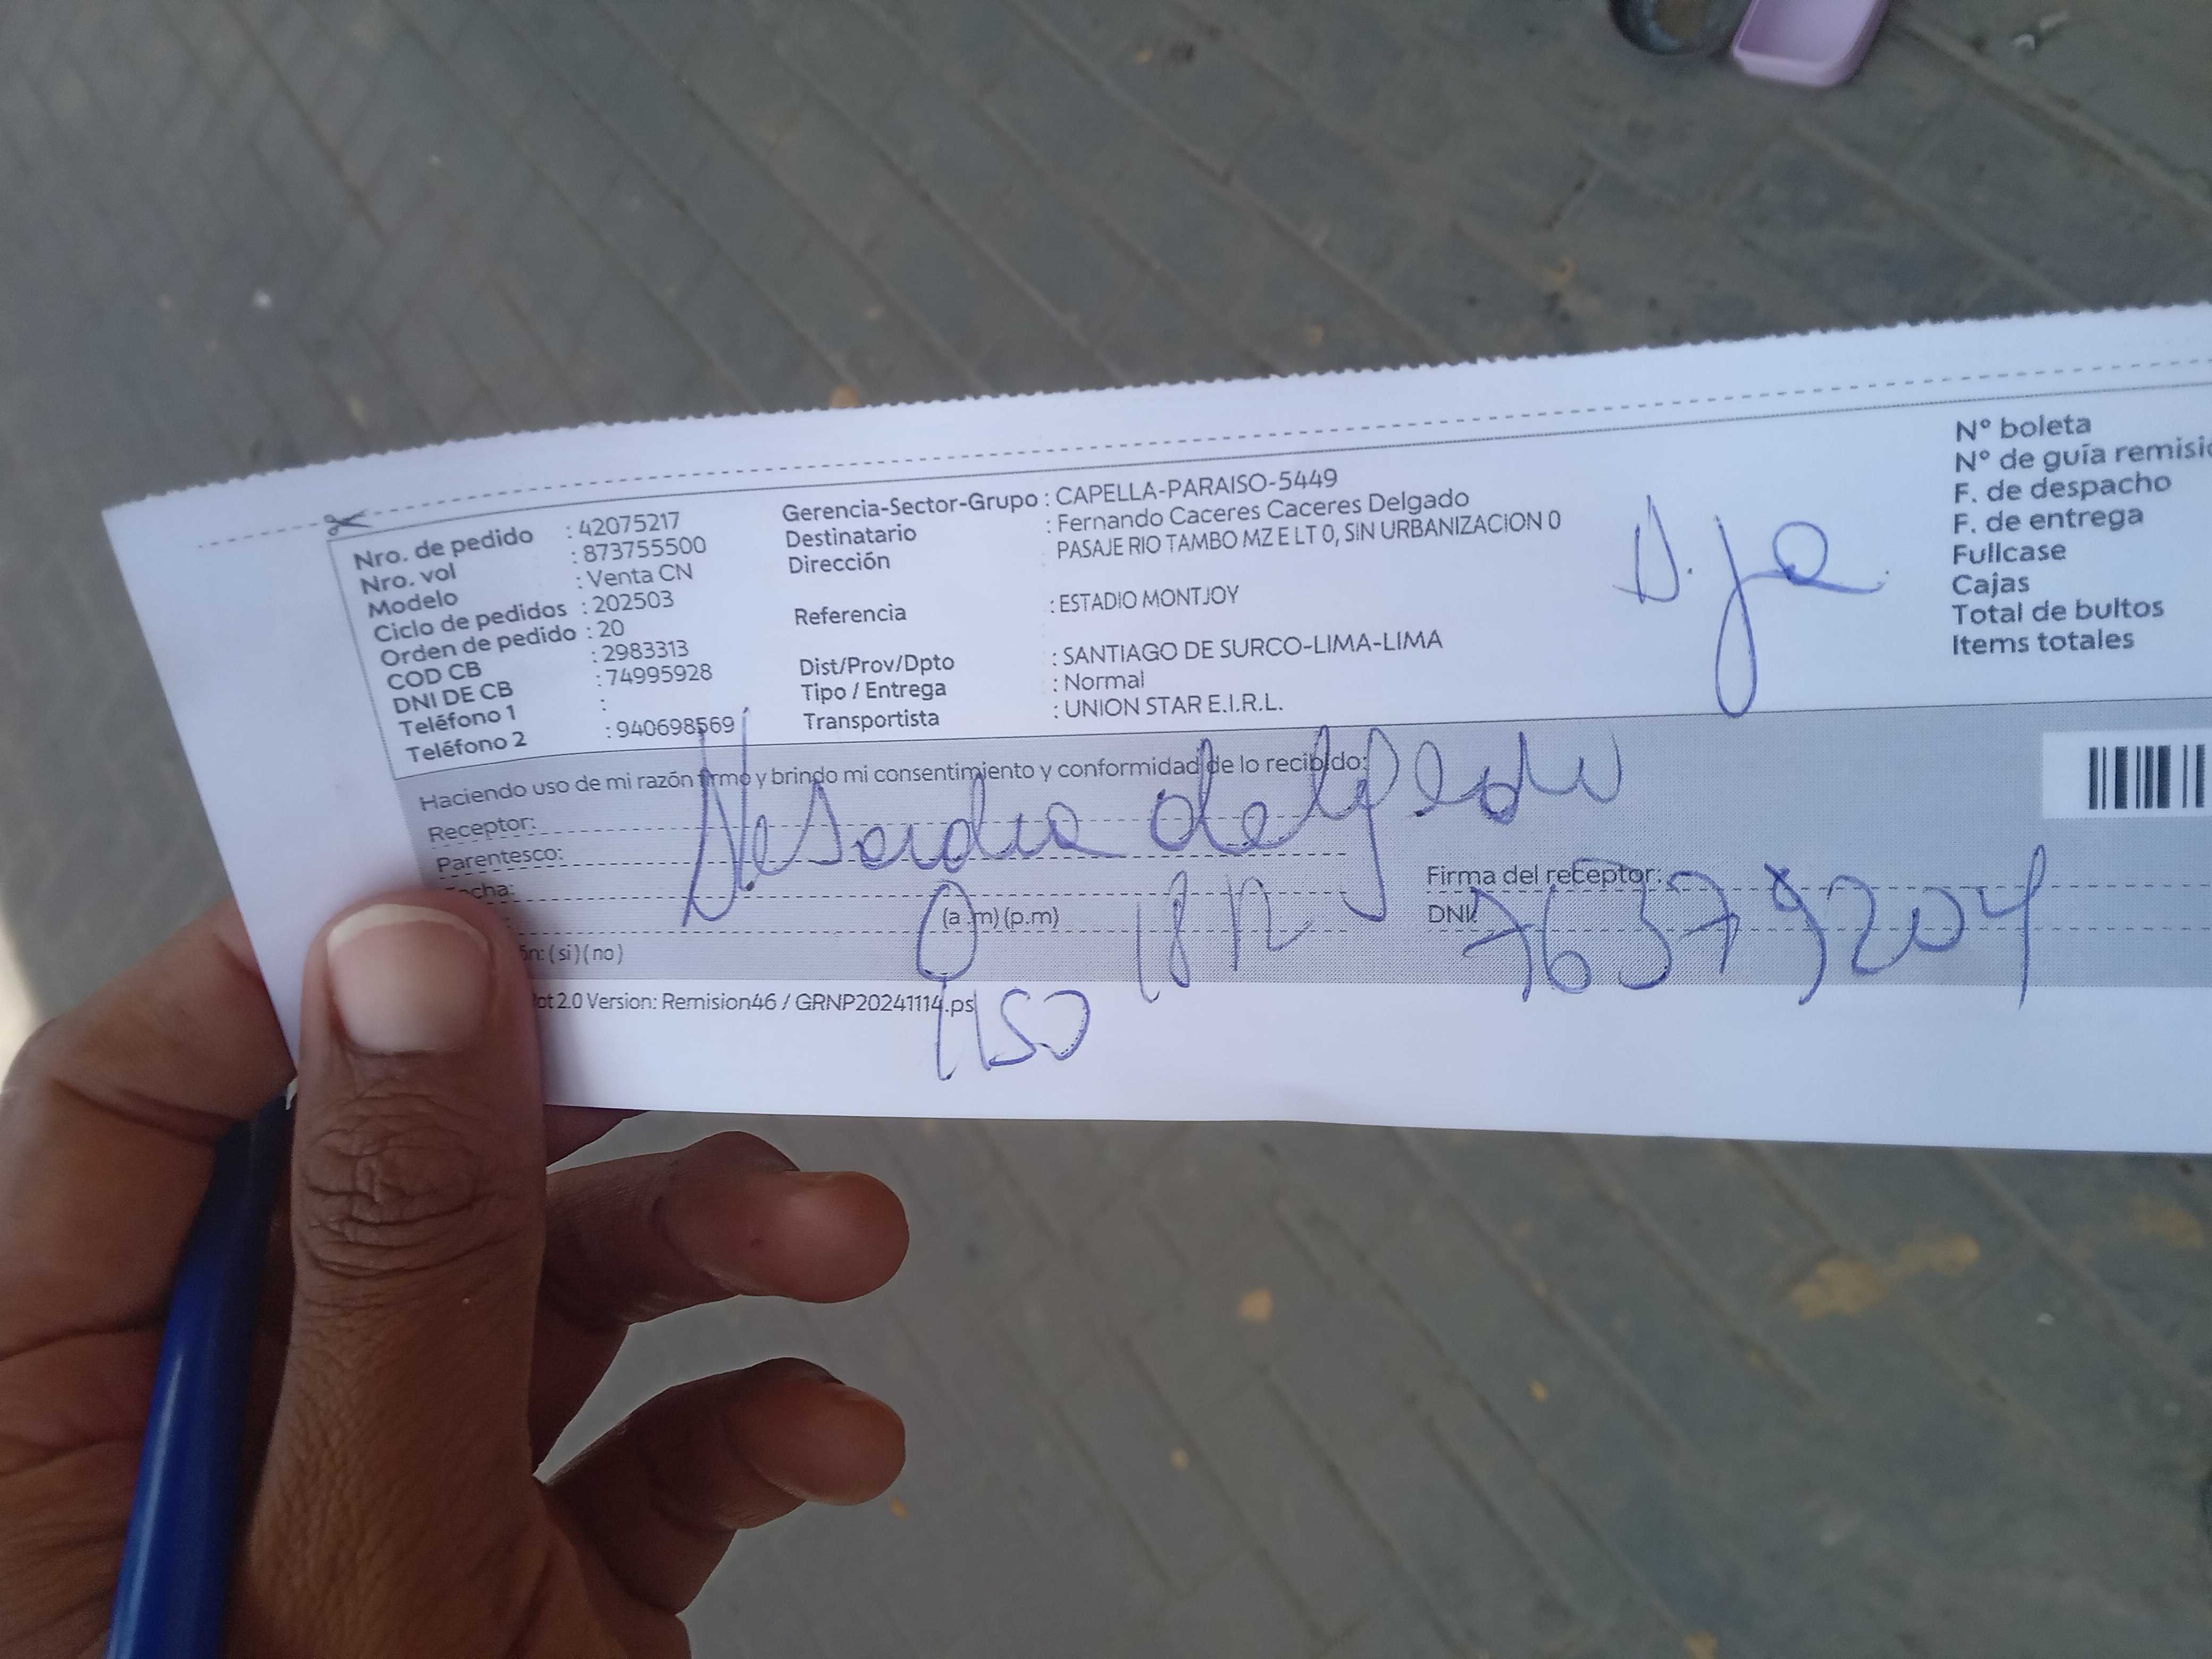 Nro. de pedido : 42075217
Nro. vol : 873755500
Modelo : Venta CN
Ciclo de pedidos : 202503
Orden de pedido : 20
COD CB : 2983313
DNI DE CB : 74995928
Teléfono 1 :
Teléfono 2 : 940698569
Gerencia-Sector-Grupo : CAPELLA-PARAISO-5449
Destinatario : Fernando Caceres Caceres Delgado
Dirección PASAJE RIO TAMBO MZ E LT 0, SIN URBANIZACION 0
Referencia : ESTADIO MONTJOY
Dist/Prov/Dpto : SANTIAGO DE SURCO-LIMA-LIMA
Tipo / Entrega : Normal
Transportista : UNION STAR E.I.R.L.
N° boleta
N° de guía remisió
F. de despacho
F. de entrega
Fullcase
Cajas
Total de bultos
Items totales
Haciendo uso de mi razón firmo y brindo mi consentimiento y conformidad de lo recibido:
Receptor:
delgado
Parentesco:
Fecha:
(a.m)(p.m) 18 12
Firma del receptor:
DNI: 76379204
ón: (si)(no)
ot 2.0 Version: Remision46 / GRNP20241114.ps
1150